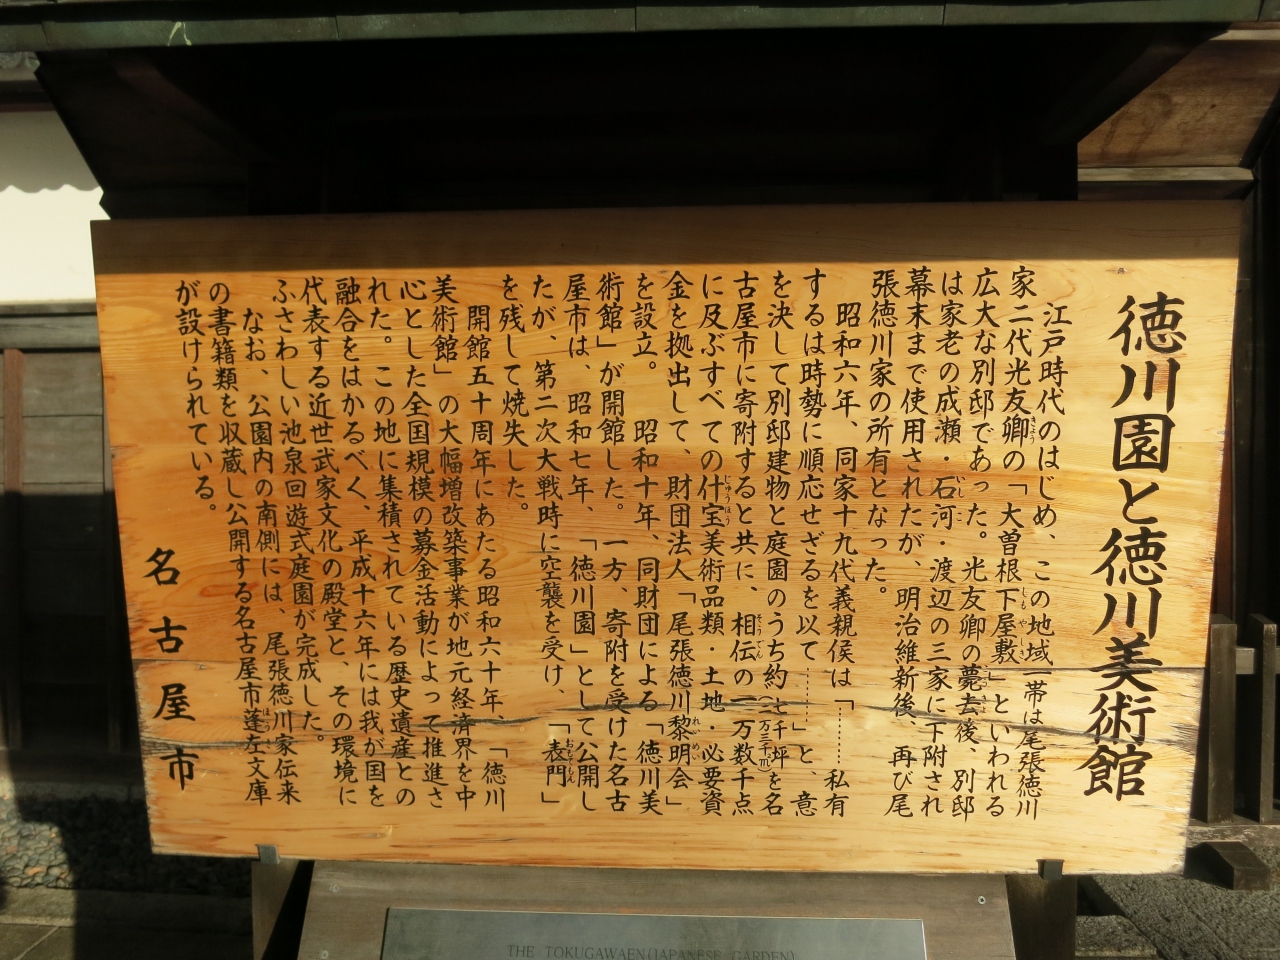 徳川園と徳川美術館
江戸時代のはじめ、この地域一帯は尾張徳川
家二代光友卿の「大曽根下屋敷」といわれる
広大な別邸であった。光友卿の薨去後、別邸
は家老の成瀬・石河・渡辺の三家に下附され
幕末まで使用されたが、明治維新後、再び尾
張徳川家の所有となった。
昭和六年、同家十九代義親侯は「………私有
するは時勢に順応せざるを以て………」と、意
を決して別邸建物と庭園のうち約七千坪を名
古屋市に寄附すると共に、相伝の一万数千点
に及ぶすべての什宝美術品類・土地・必要資
金を拠出して、財団法人「尾張徳川黎明会」
を設立。 昭和十年、同財団による「徳川美
術館」が開館した。一方、寄附を受けた名古
屋市は、昭和七年、「徳川園」として公開し
たが、第二次大戦時に空襲を受け、「表門」
を残して焼失した。
開館五十周年にあたる昭和六十年、「徳川
美術館」の大幅増改築事業が地元経済界を中
心とした全国規模の募金活動によって推進さ
れた。この地に集積されている歴史遺産との
融合をはかるべく、平成十六年には我が国を
代表する近世武家文化の殿堂と、その環境に
ふさわしい池泉回遊式庭園が完成した。
なお、公園内の南側には、尾張徳川家伝来
の書籍類を収蔵し公開する名古屋市蓬左文庫
が設けられている。
名古屋市
THE TOKUGAWAEN(JAPANESE GARDEN)